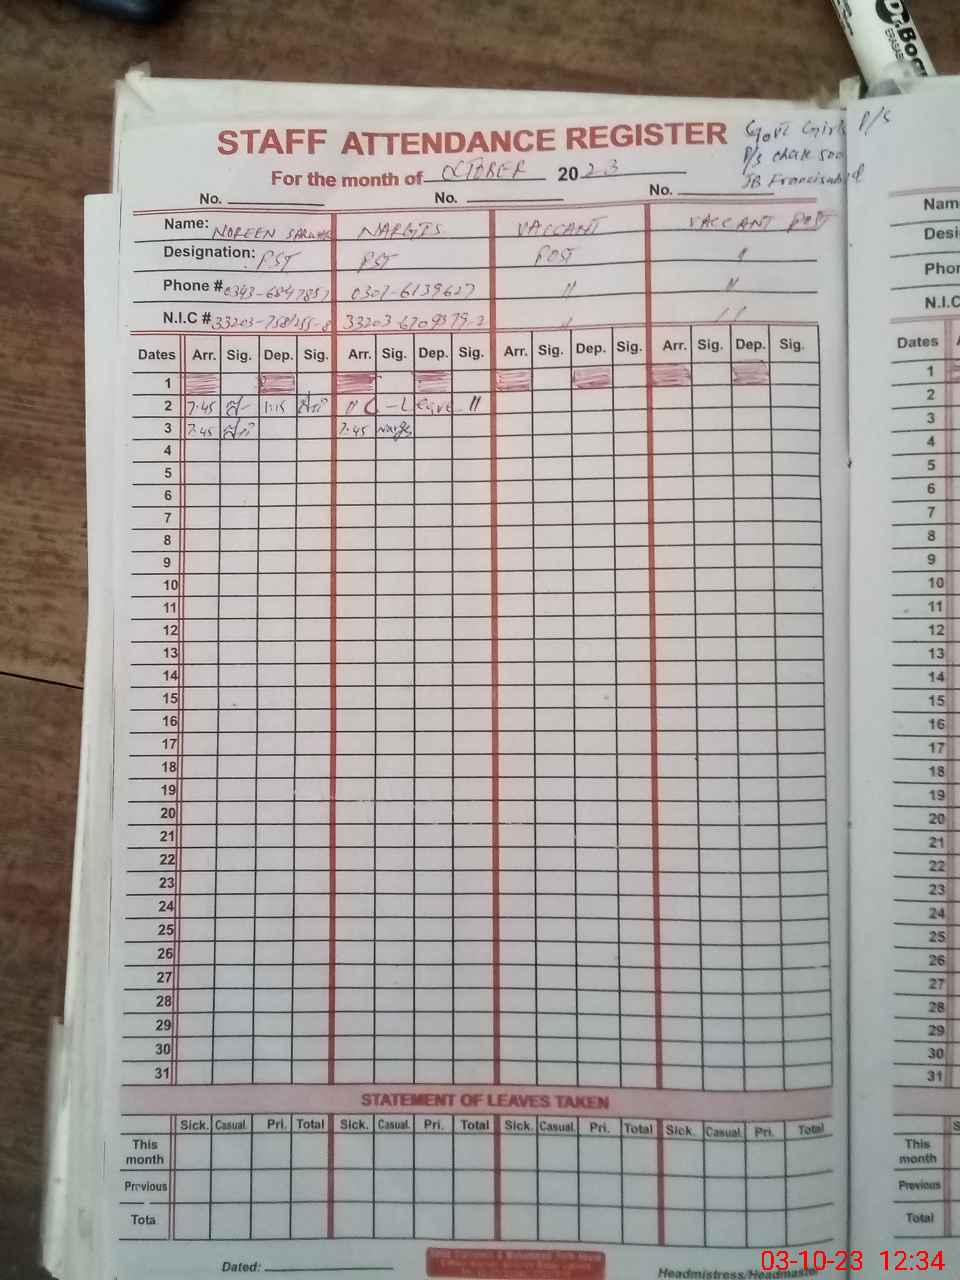 Dr.Boar
ERASAB
STAFF ATTENDANCE REGISTER
Govt Girls P/S
P/s chak 500
JB Francisabad
For the month of OCTOBER 2023
No. No. No.
Name: NOREEN SARWAR NARGIS VACCANT VACCANT POST
Designation: PST PST POST "
Phone # 0343-6847857 0301-6139627 " "
N.I.C # 33203-6709379-2 " "
Dates Arr. Sig. Dep. Sig. Arr. Sig. Dep. Sig. Arr. Sig. Dep. Sig. Arr. Sig. Dep. Sig.
1
2 7.45 1:15 " C - Leave "
3 7.45 7.45 Nargis
4
5
6
7
8
9
10
11
12
13
14
15
16
17
18
19
20
21
22
23
24
25
26
27
28
29
30
31
STATEMENT OF LEAVES TAKEN
Sick. Casual. Pri. Total Sick. Casual. Pri. Total Sick. Casual. Pri. Total Sick. Casual. Pri. Total
This month
Previous
Tota
Dated: Headmistress/Headmaster
Nam
Desi
Phon
N.I.C
Dates A
1
2
3
4
5
6
7
8
9
10
11
12
13
14
15
16
17
18
19
20
21
22
23
24
25
26
27
28
29
30
31
S
This month
Previous
Total
03-10-23 12:34